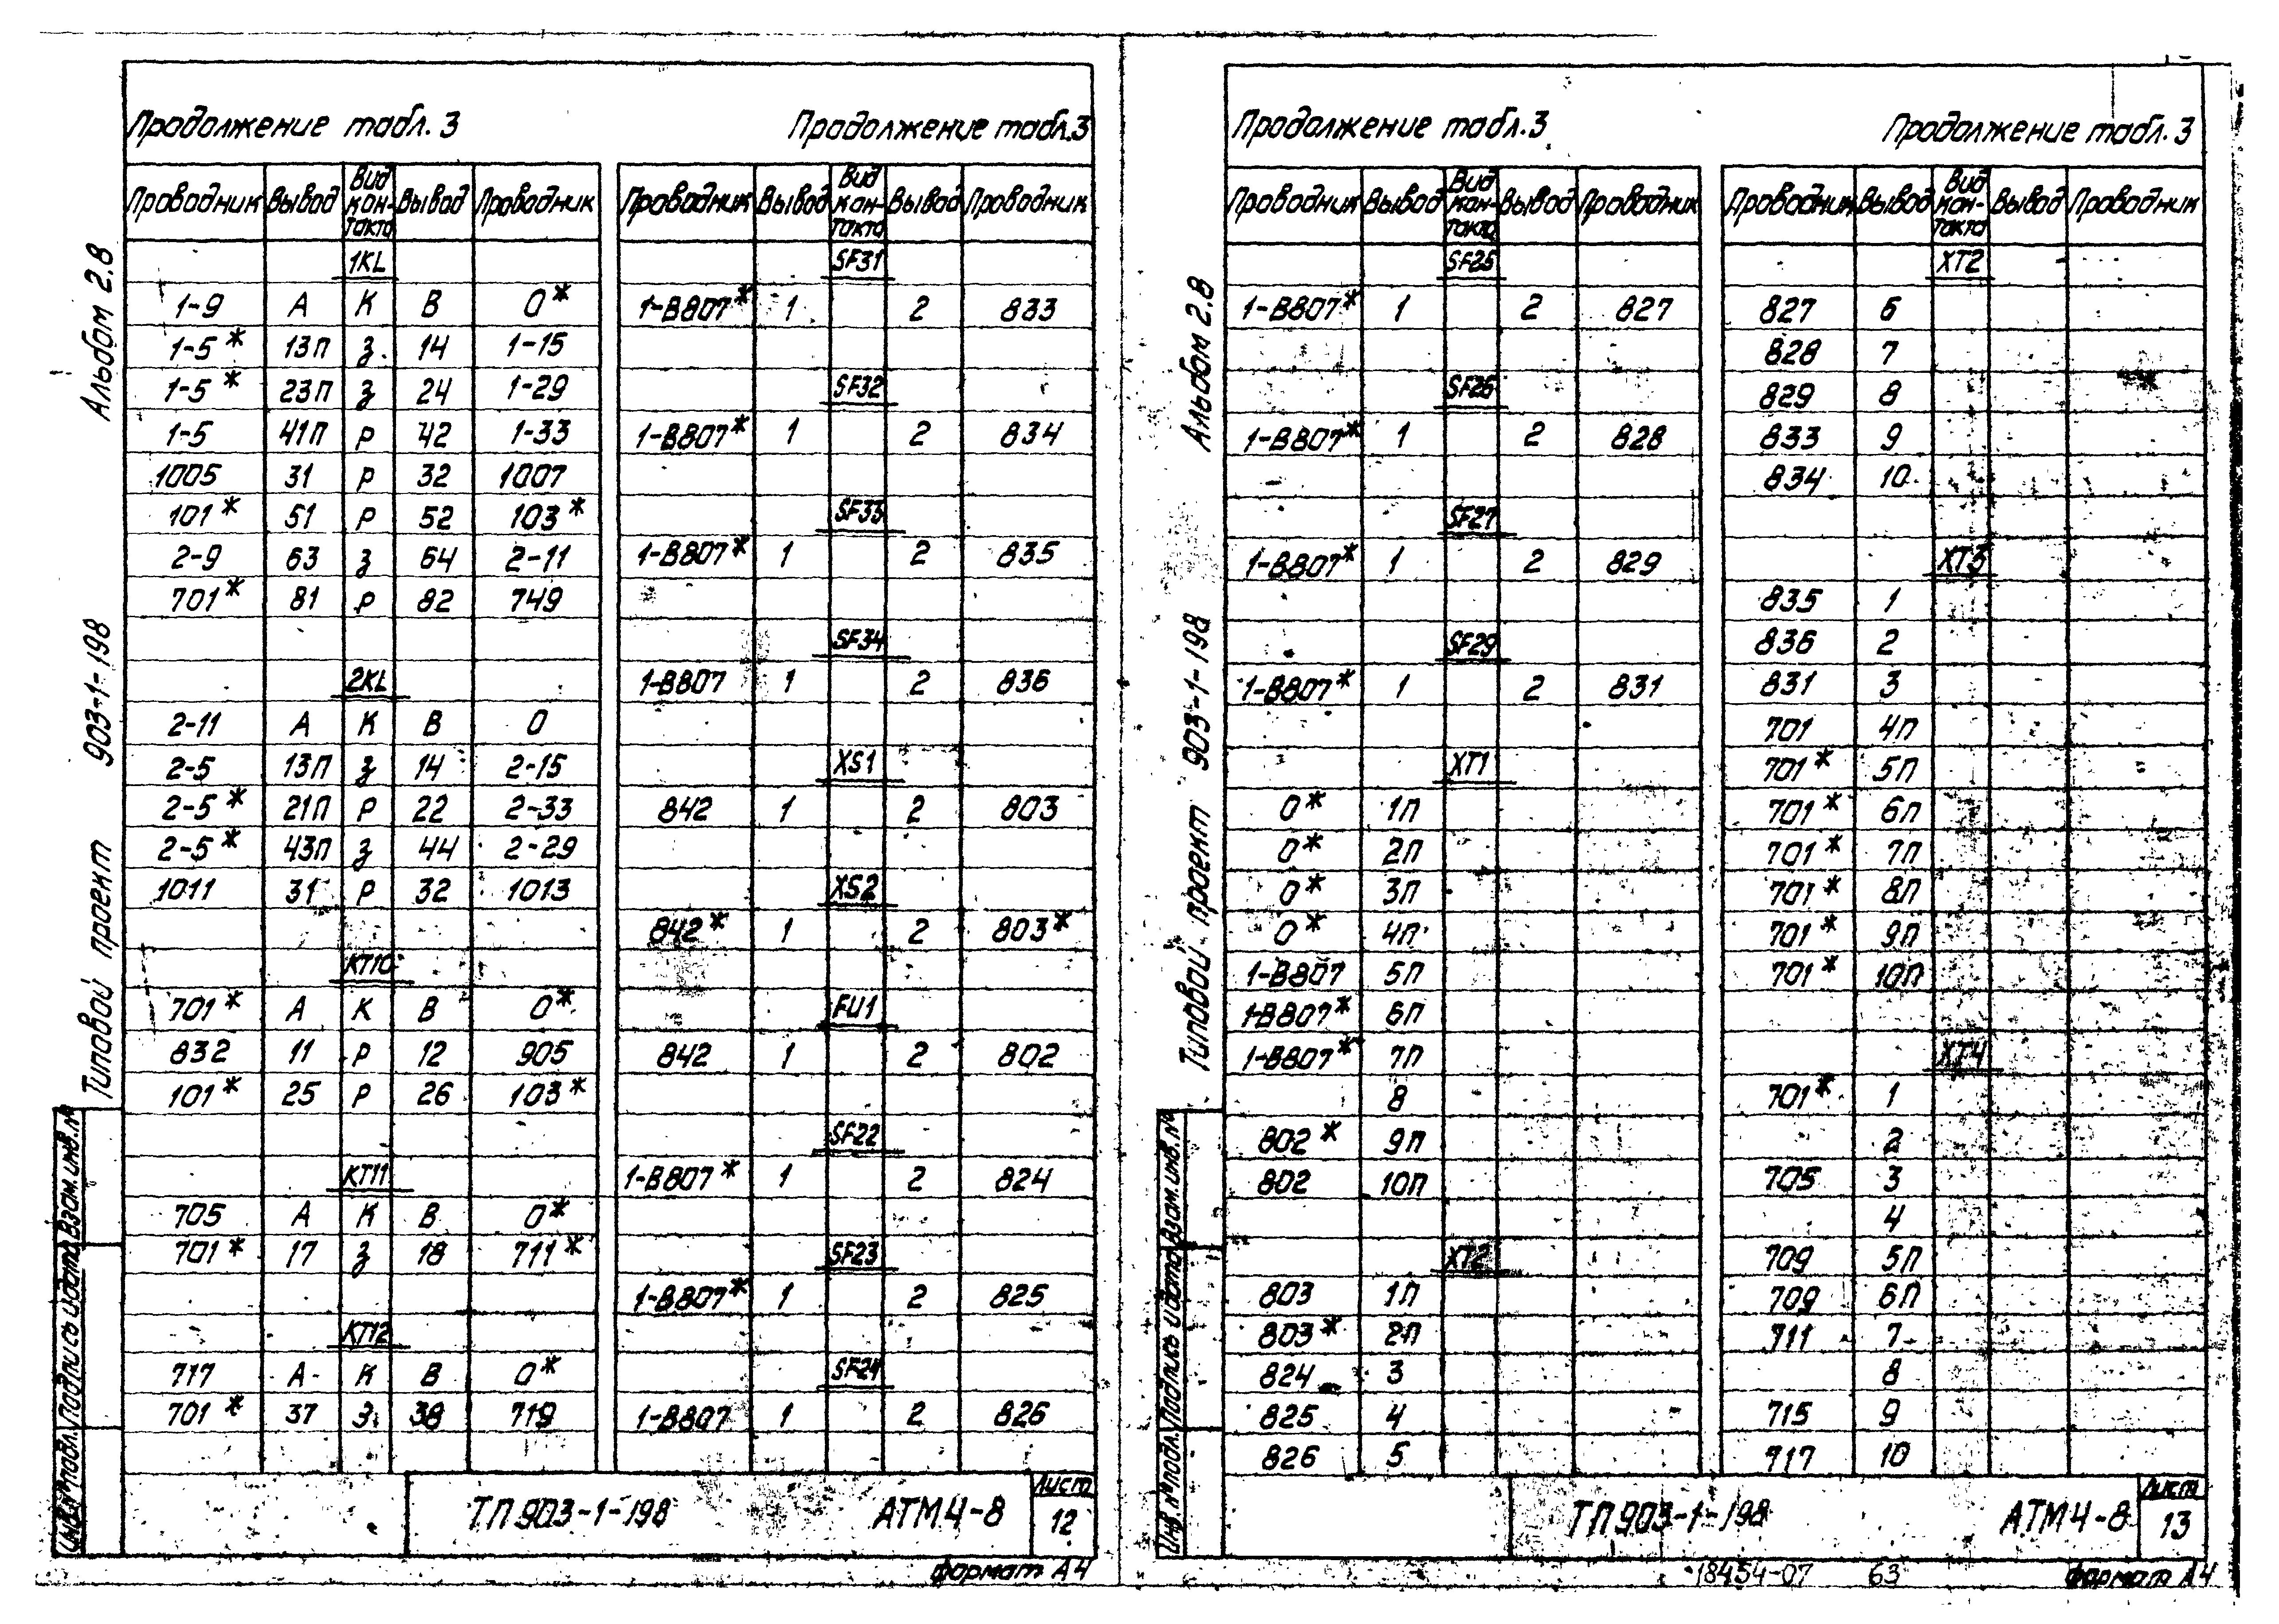 Продолжение табл. 3
Проводник Вывод Вид контакта Вывод Проводник
1KL
1-9 А К В 0*
1-5* 13П з 14 1-15
1-5* 23П з 24 1-29
1-5 41П Р 42 1-33
1005 31 Р 32 1007
101* 51 Р 52 103*
2-9 63 з 64 2-11
701* 81 Р 82 749
2KL
2-11 А К В 0
2-5 13П з 14 2-15
2-5* 21П Р 22 2-33
2-5* 43П з 44 2-29
1011 31 Р 32 1013
КТ10
701* А К В 0*
832 11 Р 12 905
101* 25 Р 26 103*
КТ11
705 А К В 0*
701* 17 з 18 711*
КТ12
717 А К В 0*
701* 37 З 38 719
Продолжение табл.3
Проводник Вывод Вид контакта Вывод Проводник
SF31
1-В807* 1 2 833
SF32
1-В807* 1 2 834
SF33
1-В807* 1 2 835
SF34
1-В807 1 2 836
XS1
842 1 2 803
XS2
842* 1 2 803*
FU1
842 1 2 802
SF22
1-В807* 1 2 824
SF23
1-В807* 1 2 825
SF24
1-В807 1 2 826
Альбом 2.8
Типовой проект 903-1-198
Взам.инв.№
Подпись и дата
Инв.№ подл.
ТП 903-1-198 АТМ4-8
Лист
12
Формат А4
Продолжение табл.3
Проводник Вывод Вид контакта Вывод Проводник
SF25
1-В807* 1 2 827
SF26
1-В807* 1 2 828
SF27
1-В807* 1 2 829
SF29
1-В807* 1 2 831
XT1
0* 1П
0* 2П
0* 3П
0* 4П
1-В807 5П
1-В807* 6П
1-В807* 7П
8
802* 9П
802 10П
XT2
803 1П
803* 2П
824 3
825 4
826 5
Продолжение табл. 3
Проводник Вывод Вид контакта Вывод Проводник
XT2
827 6
828 7
829 8
833 9
834 10
XT3
835 1
836 2
831 3
701 4П
701* 5П
701* 6П
701* 7П
701* 8П
701* 9П
701* 10П
XT4
701* 1
2
705 3
4
709 5П
709 6П
711 7
8
715 9
717 10
Альбом 2.8
Типовой проект 903-1-198
Взам.инв.№
Подпись и дата
Инв.№ подл.
ТП 903-1-198 АТМ4-8
Лист
13
18454-07 63 Формат А4